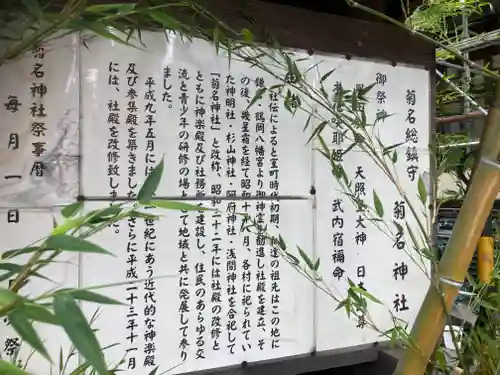 菊名総鎮守 菊名神社
御祭神
天照皇大神 日本武尊
木花咲耶姫 武内宿禰命
由
社伝によると室町時代初期、の祖先はこの地に
鎌 鶴岡八幡宮より御神霊を勧進し社殿を建立、そ
の後、幾星霜を経て昭和十 月、各村に祀られてい
た神明社・杉山神社・阿府神社・浅間神社を合祀して
「菊名神社」と改称、昭和二十一年には社殿の改修と
ともに神楽殿及び社務所を建設し、住民のあらゆる交
流と青少年の研修の場として地域と共に発展して参り
ました。
平成九年五月には にあう近代的な神楽殿
及び参集殿を築きました。さらに平成二十三年十一月
には、社殿を改修致しました。
菊名神社祭事暦
毎月一日 祭